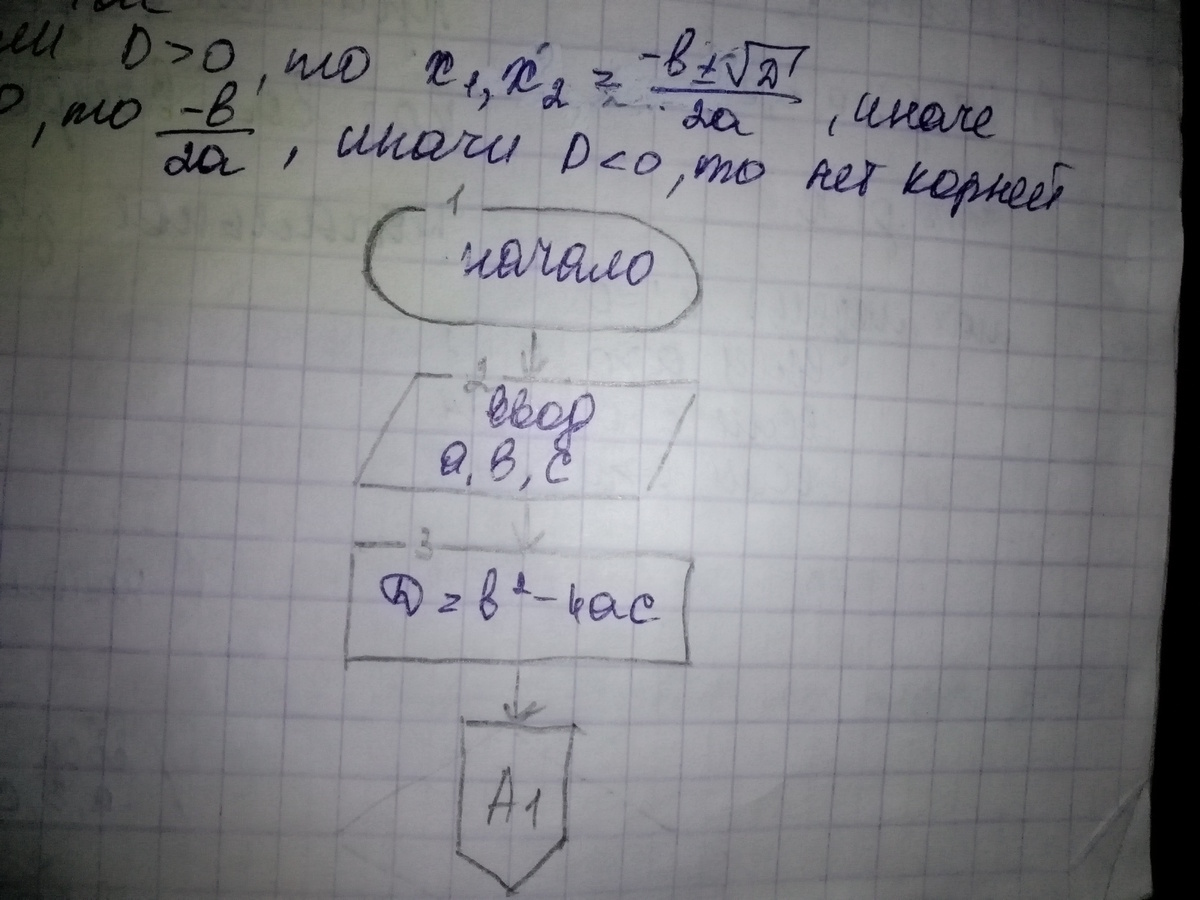 D>0, то x₁, x₂ = -в±√D / 2a, иначе
, то -в / 2a, иначи D<0, то нет корней
1
начало
2
ввод
a, в, c
3
D = в² - 4ac
A1